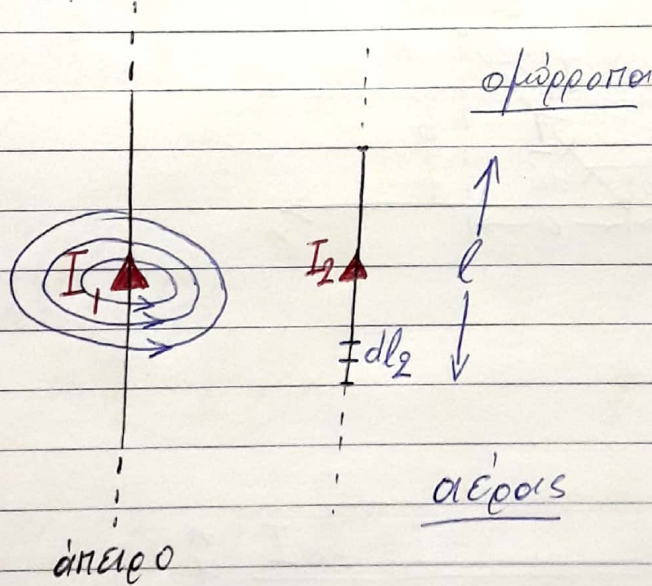 ομόρροπα
I₁
I₂
l
dl₂
αέρας
άπειρο